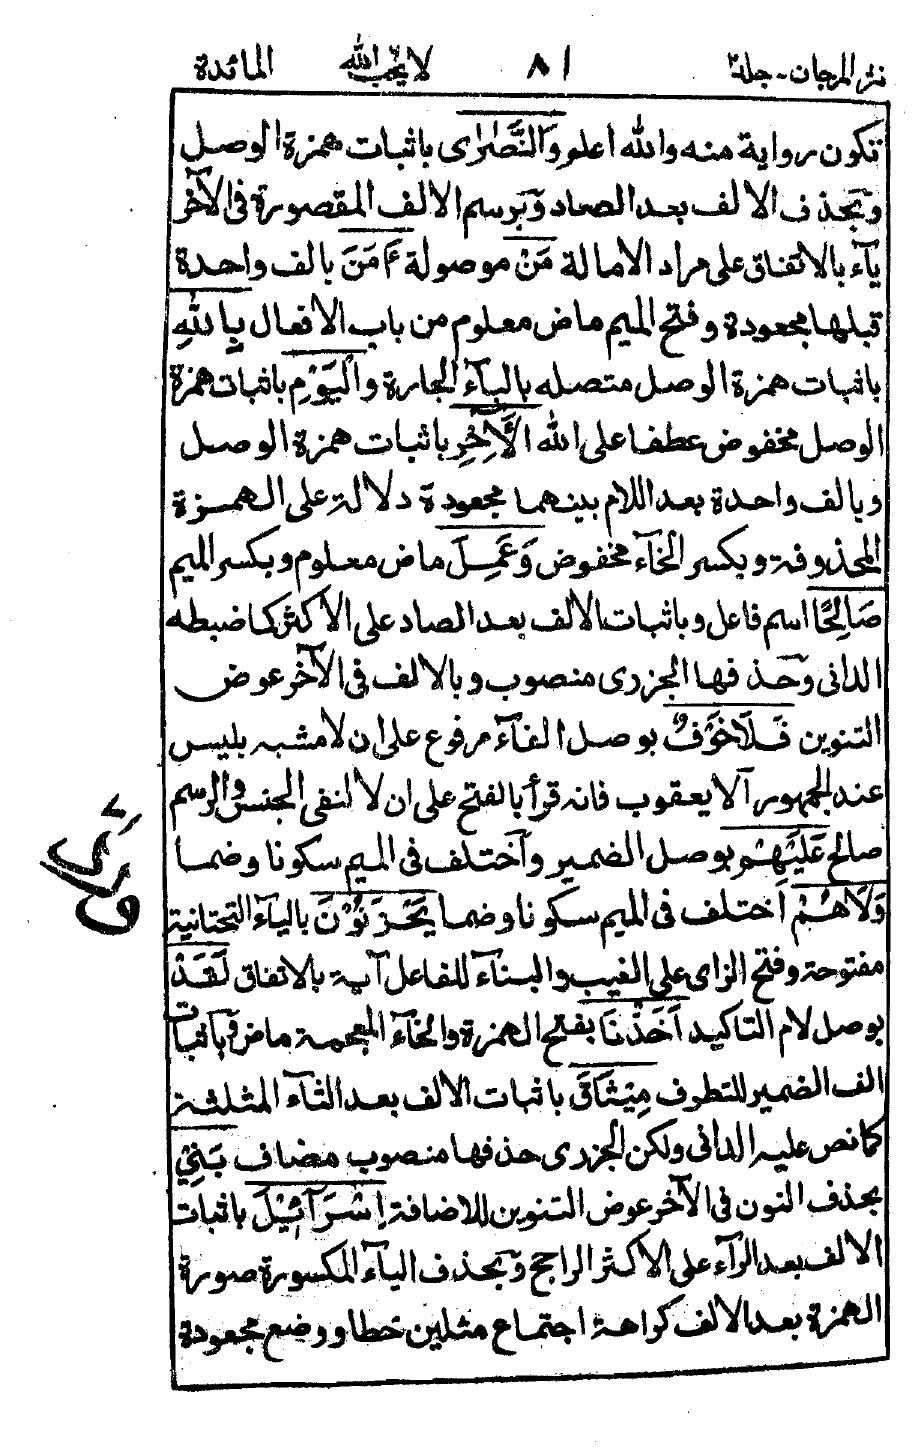 نثر المرجان - جلد ٢ ٨١ لا يحب الله المائدة
تكون رواية منه والله اعلم وَالنَّصٰرٰى باثبات همزة الوصل
وبحذف الالف بعد الصاد وبرسم الالف المقصورة فى الآخر
يآء بالاتفاق على مراد الامالة مَنْ موصولة ءَامَنَ بالف واحدة
قبلها مجعودة وفتح الميم ماض معلوم من باب الافعال بِاللهِ
باثبات همزة الوصل متصله بالبآء الجارة وَالْيَوْمِ باثبات همزة
الوصل مخفوض عطفا على الله الْاٰخِرِ باثبات همزة الوصل
وبالف واحدة بعد اللام بينهما مجعودة دلالة على الهمزة
المحذوفة وبكسر الخآء مخفوض وَعَمِلَ ماض معلوم وبكسر الميم
صَالِحًا اسم فاعل وباثبات الالف بعد الصاد على الاكثر كما ضبطه
الدانى وحذفها الجزرى منصوب وبالالف فى الآخر عوض
التنوين فَلَاخَوْفٌ بوصل الفآء مرفوع على ان لا مشبه بليس
عند الجمهور الا يعقوب فانه قرأ بالفتح على ان لا لنفى الجنس والرسم
صالح عَلَيْهِمْ بوصل الضمير واختلف فى الميم سكونا وضما
وَلَاهُمْ اختلف فى الميم سكونا وضما يَحْزَنُوْنَ بالياء التحتانية
مفتوحة وفتح الزاى على الغيب والبنآء للفاعل آية بالاتفاق لَقَدْ
بوصل لام التاكيد اَخَذْنَا بفتح الهمزة والخآء المعجمة ماض وباثبات
الف الضمير للتطرف مِيْثَاقَ باثبات الالف بعد الثآء المثلثة
كما نص عليه الدانى ولكن الجزرى حذفها منصوب مضاف بَنِيْ
بحذف النون فى الآخر عوض التنوين للاضافة اِسْرَآئِيْلَ باثبات
الالف بعد الرآء على الاكثر الراجح وبحذف اليآء المكسورة صورة
الهمزة بعد الالف كراهة اجتماع مثلين خطا ووضع مجعودة